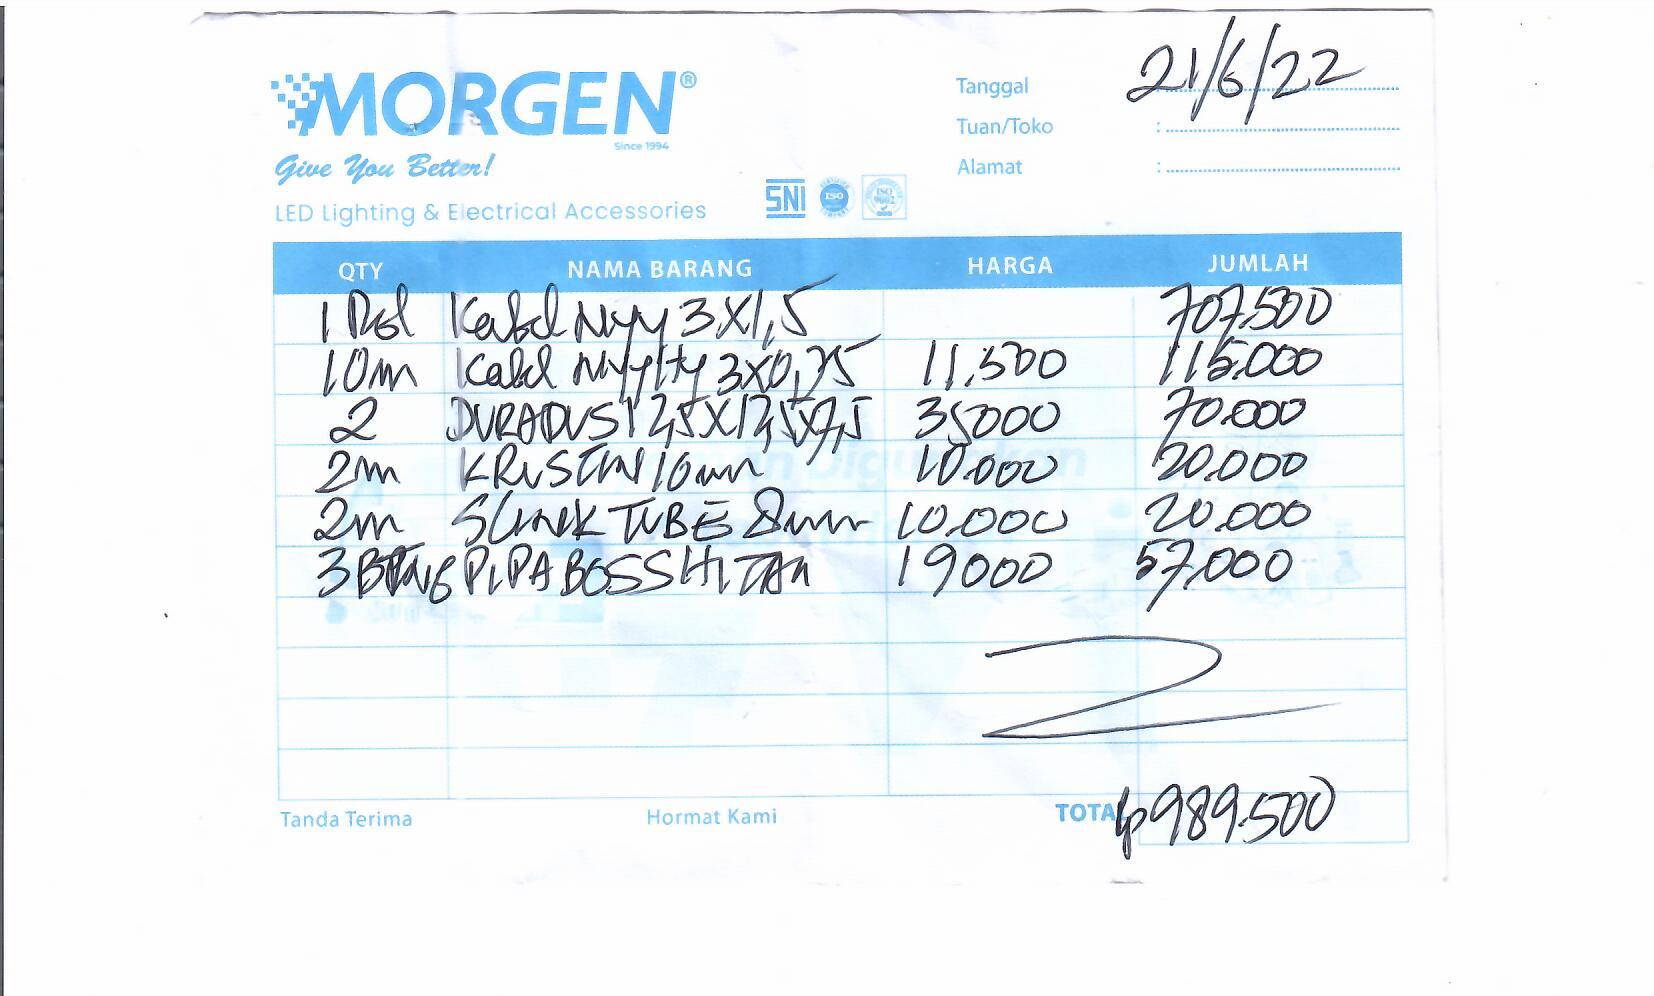 MORGEN®
Since 1994
Give You Better!
LED Lighting & Electrical Accessories
SNI ISO ISO 9002
Tanggal : 21/6/22
Tuan/Toko :
Alamat :
QTY NAMA BARANG HARGA JUMLAH
1 Rol Kabel Nyy 3X1,5 707.500
10m Kabel 3X0,75 11,500 115.000
2 DURADUS 12,5X12,5X7,5 35000 70.000
2m 10mm 10.000 20.000
2m TUBE 8mm 10.000 20.000
3 PIPA BOSS HITAM 19000 57.000
Tanda Terima Hormat Kami TOTAL Rp 989.500